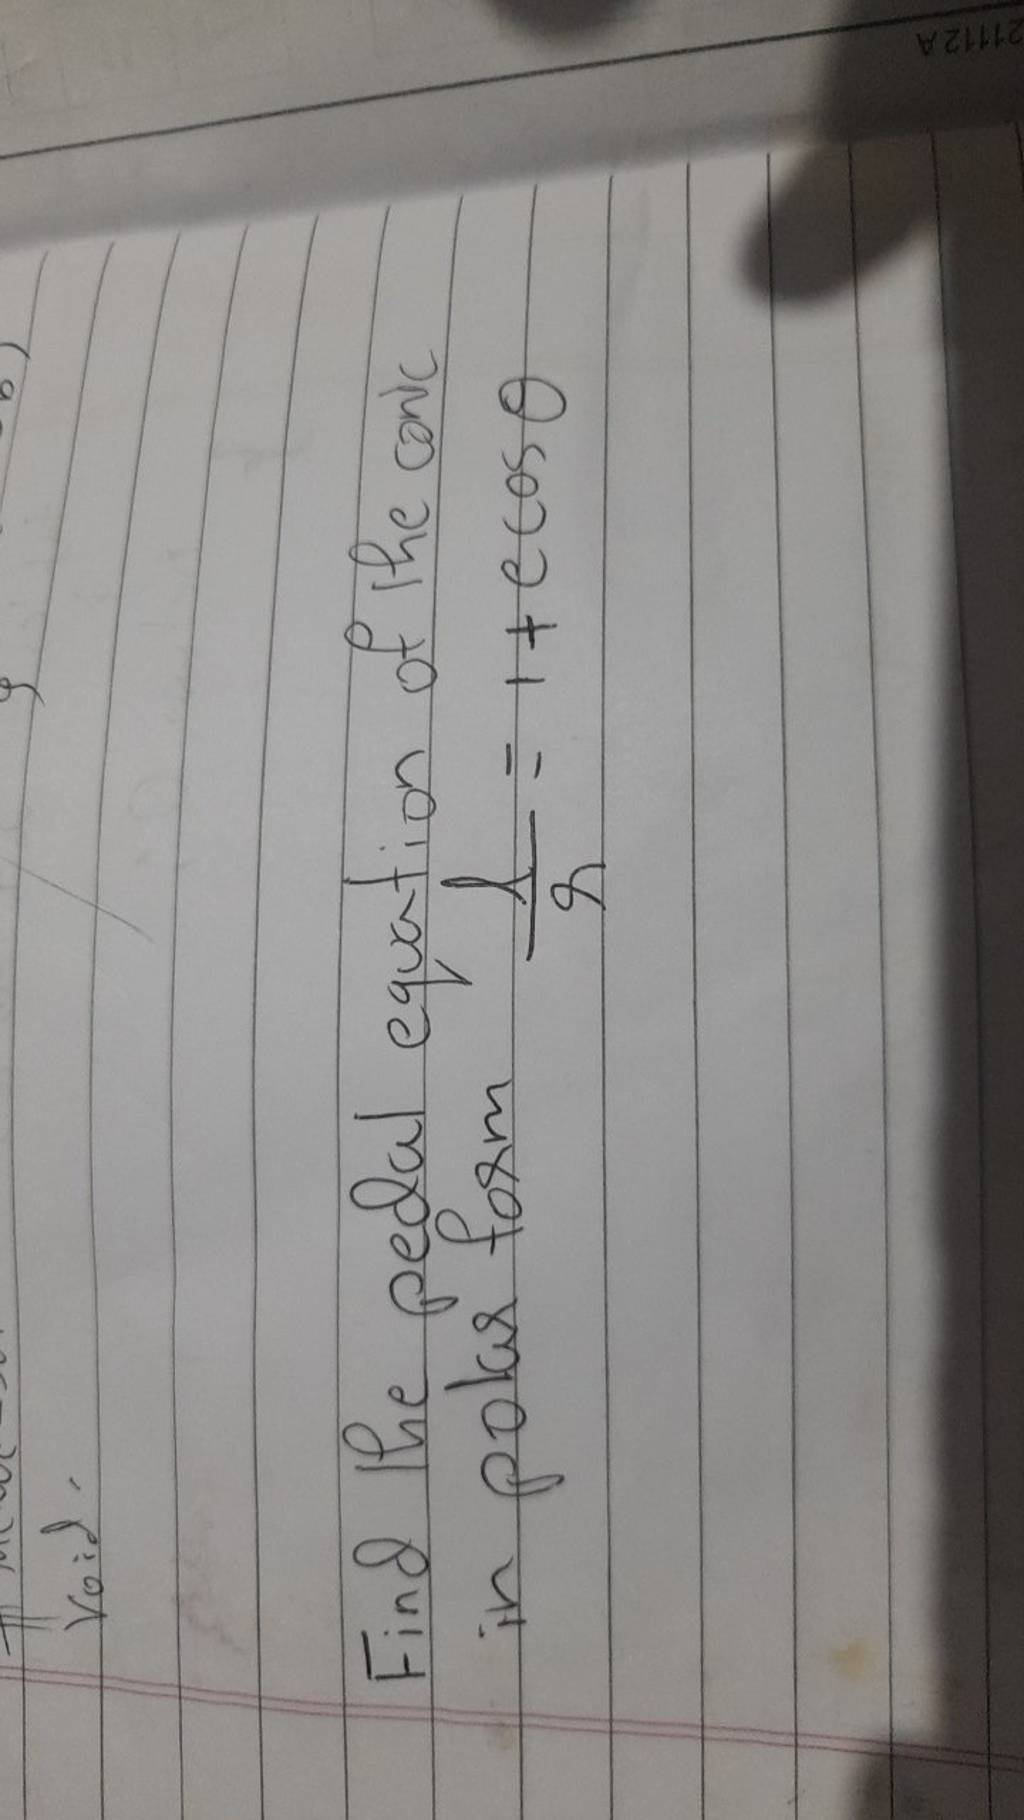 21112A
Void.
Find the pedal equation of the conic
in polar form l/r = 1 + e cos θ